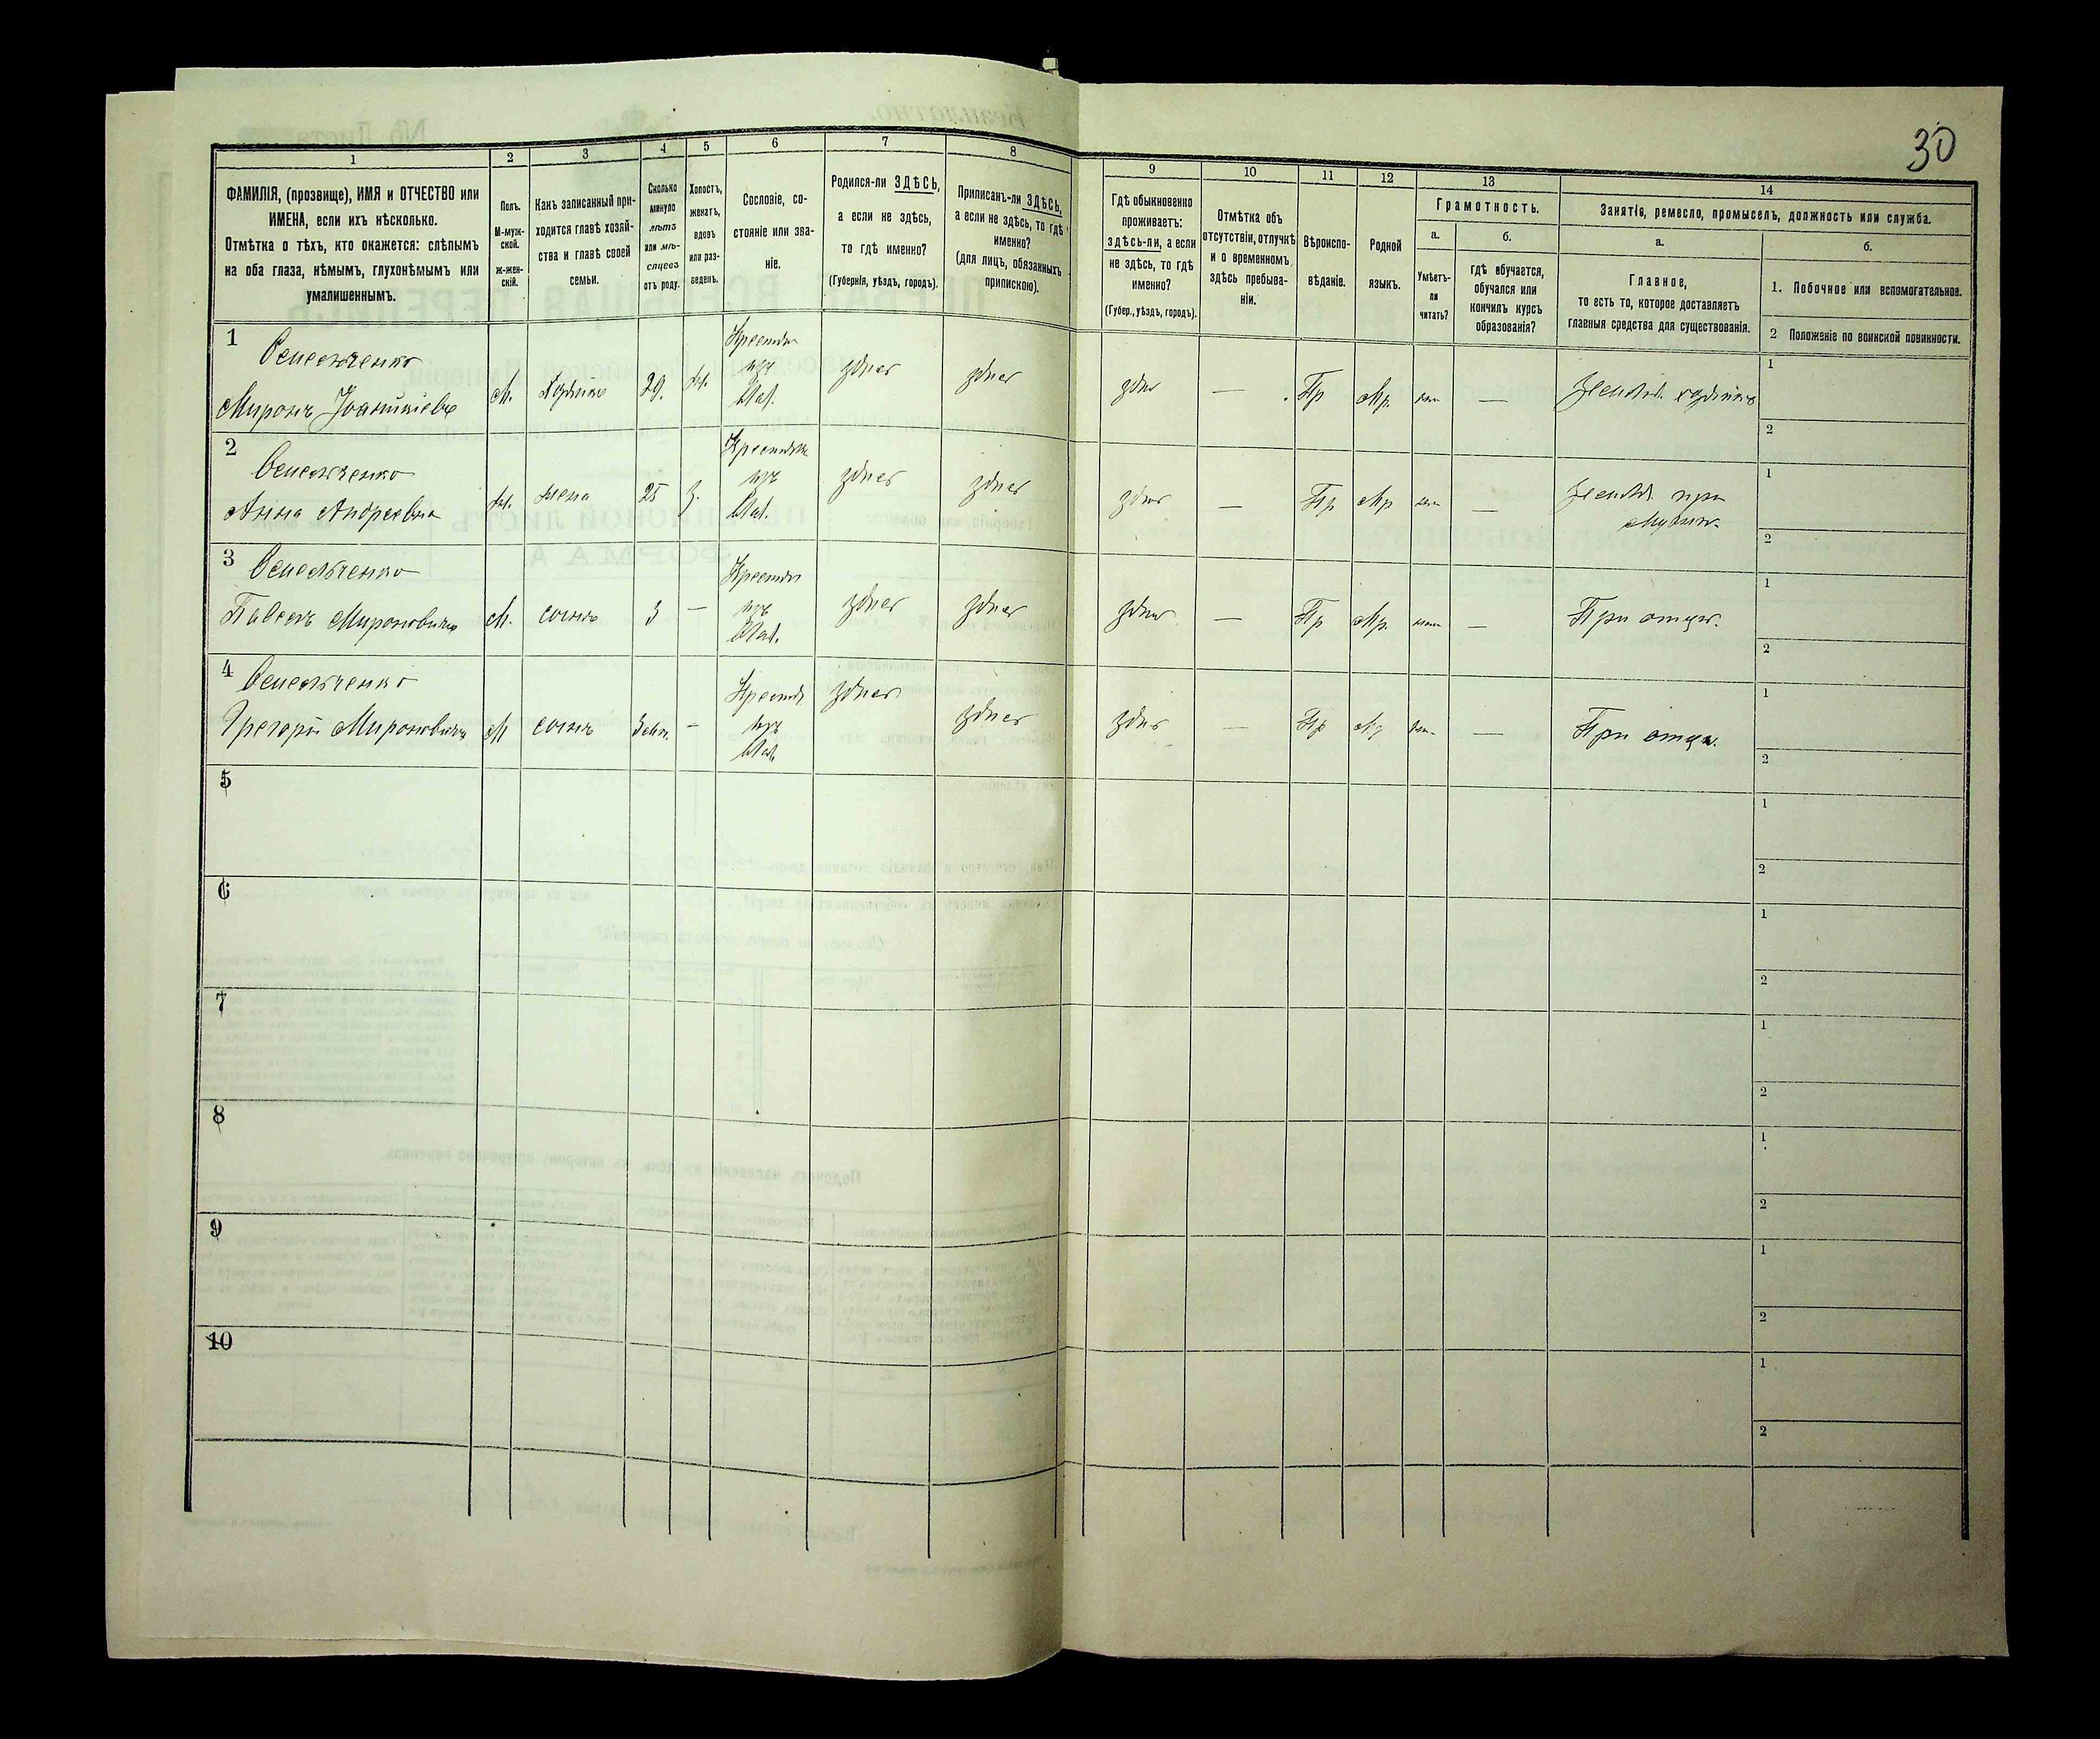 30
1
2
3
4
5
6
7
8
9
10
11
12
13
14
ФАМИЛІЯ, (прозвище), ИМЯ и ОТЧЕСТВО или
ИМЕНА, если ихъ нѣсколько.
Отмѣтка о тѣхъ, кто окажется: слѣпымъ
на оба глаза, нѣмымъ, глухонѣмымъ или
умалишеннымъ.
Полъ.
М-муж-
ской.
ж-жен-
скій.
Какъ записанный при-
ходится главѣ хозяй-
ства и главѣ своей
семьи.
Сколько
минуло
лѣтъ
или мѣ-
сяцевъ
отъ роду.
Холостъ,
женатъ,
вдовъ
или раз-
веденъ.
Сословіе, со-
стояніе или зва-
ніе.
Родился-ли ЗДѢСЬ,
а если не здѣсь,
то гдѣ именно?
(Губернія, уѣздъ, городъ).
Приписанъ-ли ЗДѢСЬ,
а если не здѣсь, то гдѣ
именно?
(для лицъ, обязанныхъ
припискою).
Гдѣ обыкновенно
проживаетъ:
здѣсь-ли, а если
не здѣсь, то гдѣ
именно?
(Губер., уѣздъ, городъ).
Отмѣтка объ
отсутствіи, отлучкѣ
и о временномъ
здѣсь пребыва-
ніи.
Вѣроиспо-
вѣданіе.
Родной
языкъ.
Грамотность.
а.
Умѣетъ-
ли
читать?
б.
гдѣ обучается,
обучался или
кончилъ курсъ
образованія?
Занятіе, ремесло, промыселъ, должность или служба.
а.
Главное,
то есть то, которое доставляетъ
главныя средства для существованія.
б.
1. Побочное или вспомогательное.
2 Положеніе по воинской повинности.
1
Омельченко
Миронъ Іоаникіевъ
М.
Хозяинъ
29.
Ж.
изъ
здѣсь
здѣсь
здѣсь
—
Пр
Мр.
—
Землед. хозяинъ
1
2
2
Омельченко
Анна Андреевна
Ж.
жена
25
З.
изъ
здѣсь
здѣсь
здѣсь
—
Пр
Мр
—
Землед. при
мужѣ.
1
2
3
Омельченко
Павелъ Мироновичъ
М.
сынъ
3
—
изъ
здѣсь
здѣсь
здѣсь
—
Пр
Мр.
—
При отцѣ.
1
2
4
Омельченко
Григорій Мироновичъ
М
сынъ
—
изъ
здѣсь
здѣсь
здѣсь
—
Пр
Мр
—
При отцѣ.
1
2
5
1
2
6
1
2
7
1
2
8
1
2
9
1
2
10
1
2